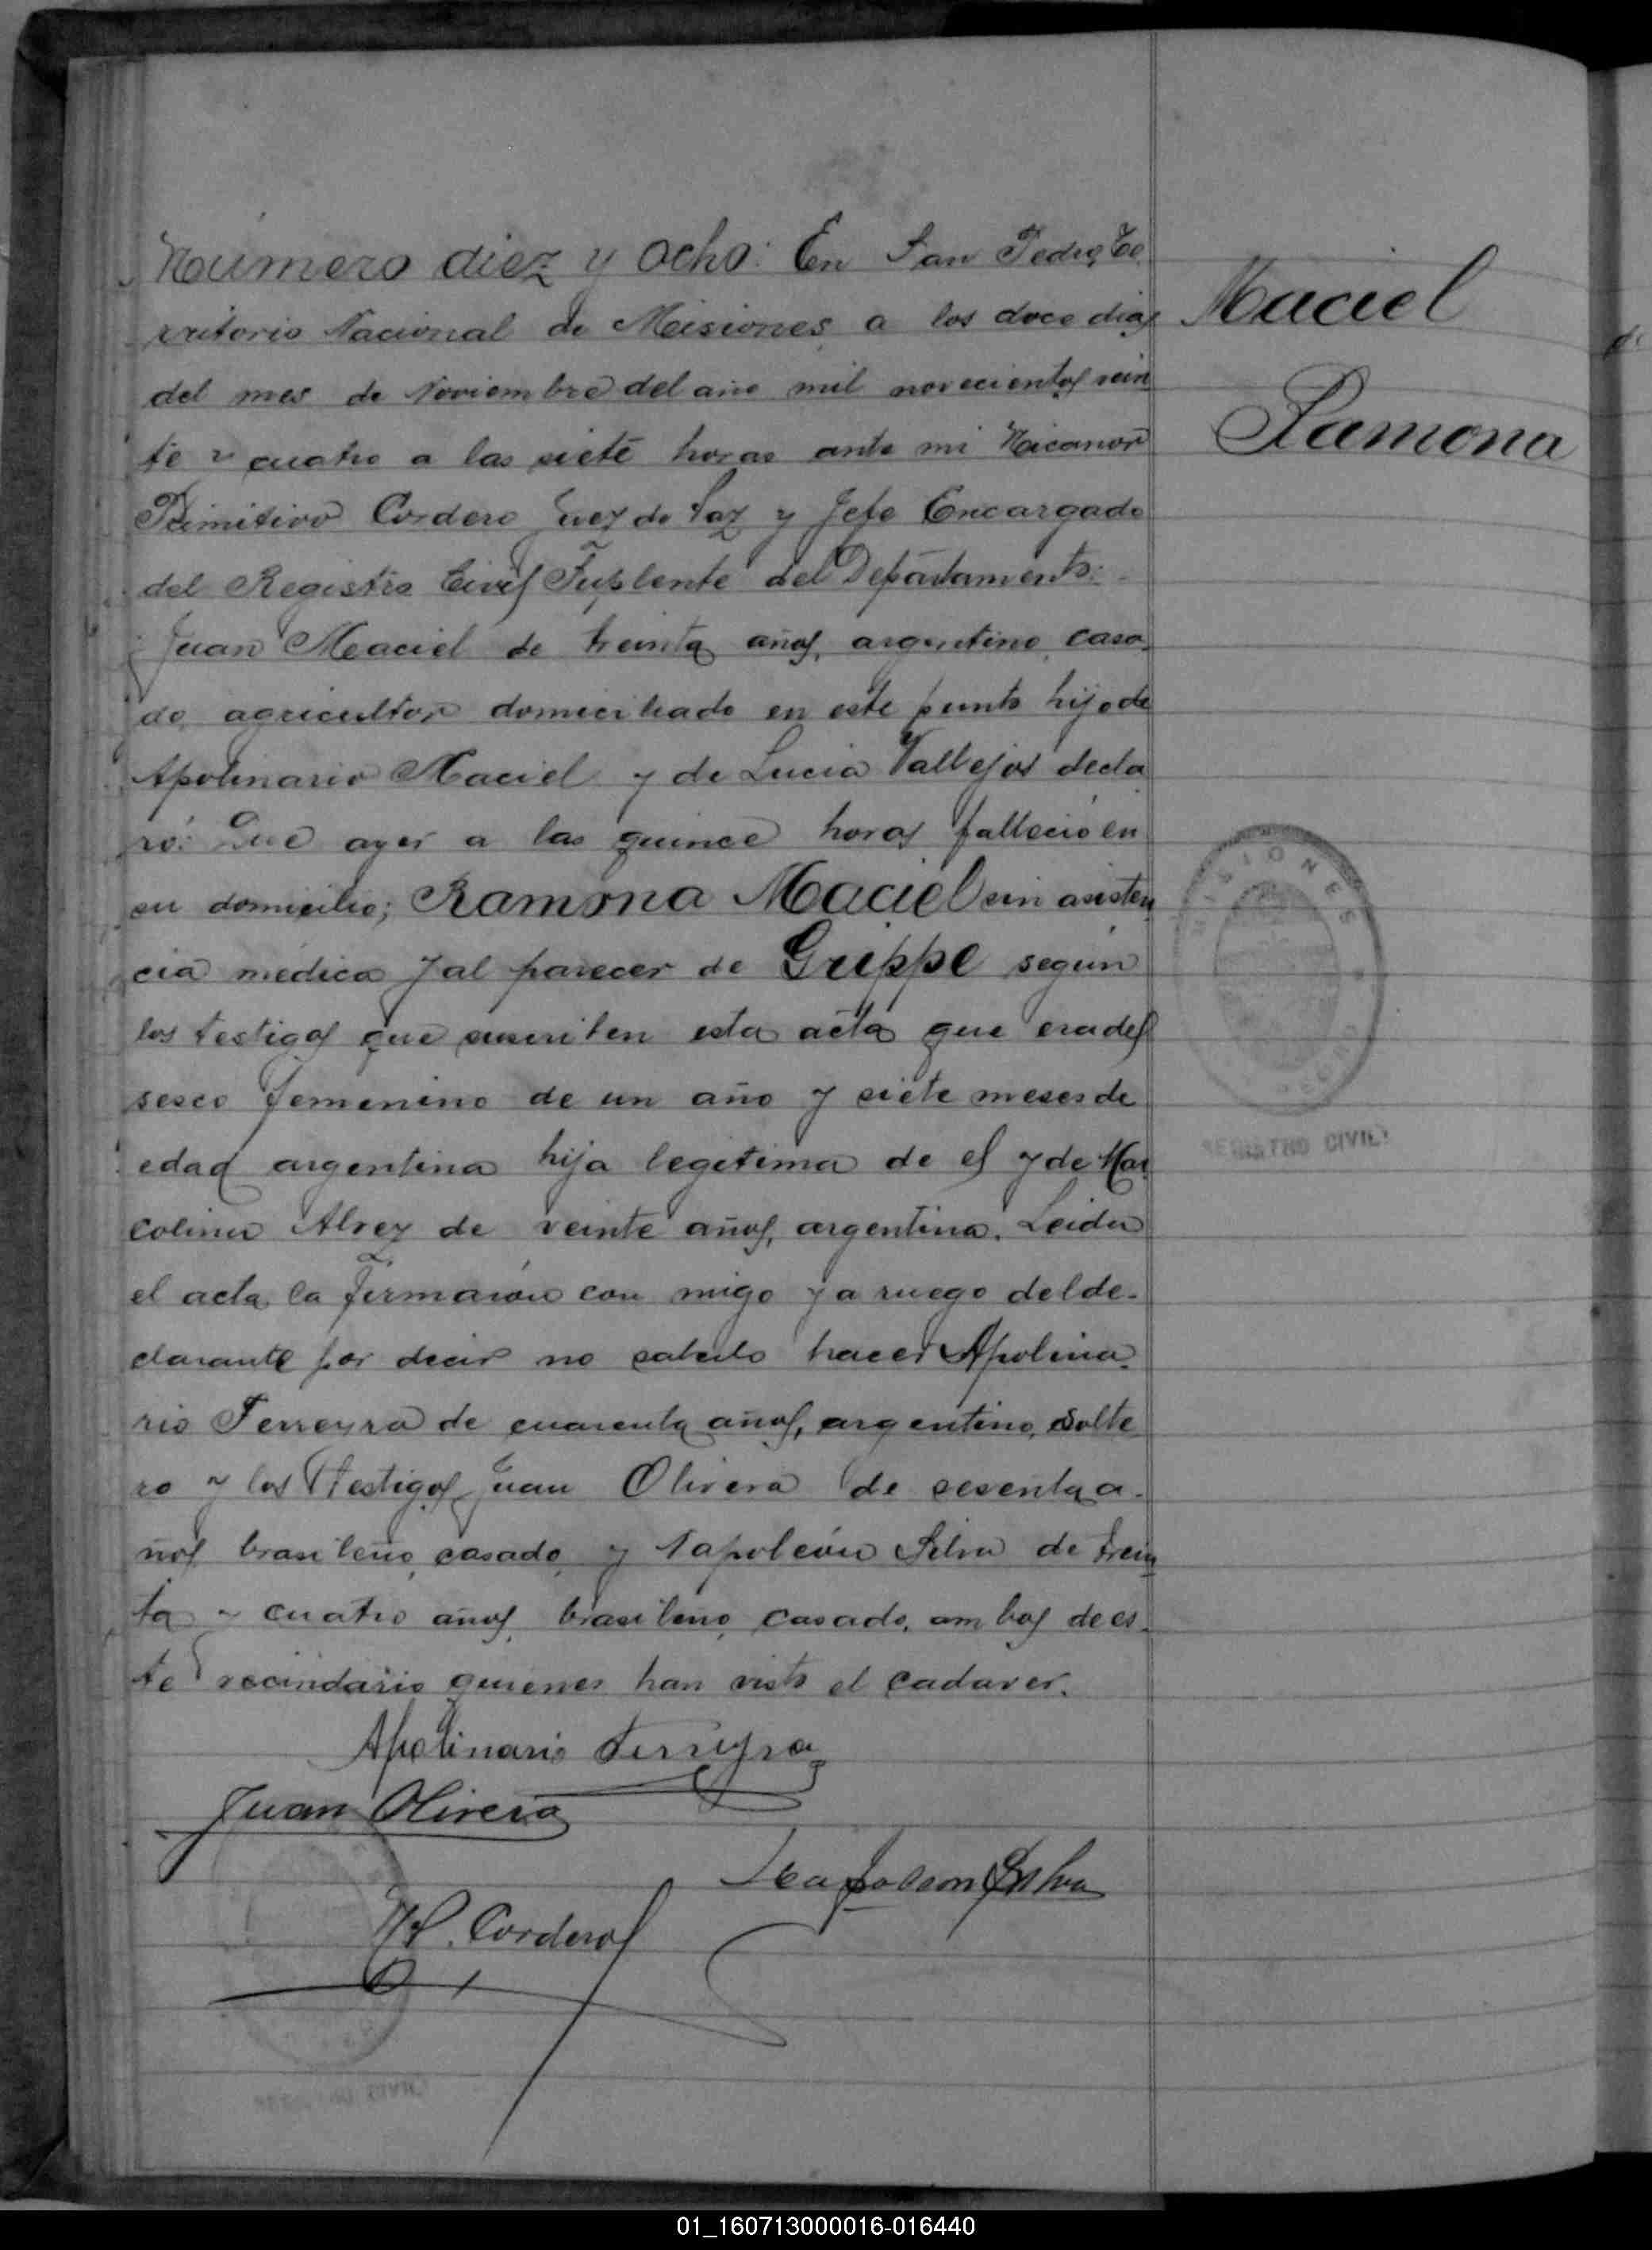 Número diez y ocho: En San Pedro, Te
rritorio Nacional de Misiones a los doce dias
del mes de Noviembre del año mil novecientos vein
te y cuatro a las siete horas ante mi Nicanor
Primitivo Cordero Juez de Paz y Jefe Encargado
del Registro Civil Suplente del Departamento:
Juan Maciel de treinta años, argentino, casa-
do, agricultor domiciliado en este punto hijo de
Apolinario Maciel y de Lucia Vallejos decla
ró: Que ayer a las quince horas falleció en
su domicilio; Ramona Maciel sin asisten
cia médica y al parecer de Grippe según
los testigos que suscriben esta acta que era del
sexo femenino de un año y siete meses de
edad argentina hija legitima de el y de Mar
colina Alvez de veinte años, argentina. Leida
el acta la firmaron con migo y a ruego del de-
clarante por decir no saberlo hacer Apolina-
rio Ferreyra de cuarenta años, argentino, solte
ro y los testigos Juan Olivera de sesenta a-
ños brasileño, casado, y Napoleón Silva de trein
ta y cuatro años, brasileño, casado, ambos de es-
te vecindario quienes han visto el cadaver.
Apolinario Ferreyra
Juan Olivera
Napoleon Silva
N.P. Cordero
Maciel
Ramona
MISIONES
REGISTRO CIVIL
01_160713000016-016440